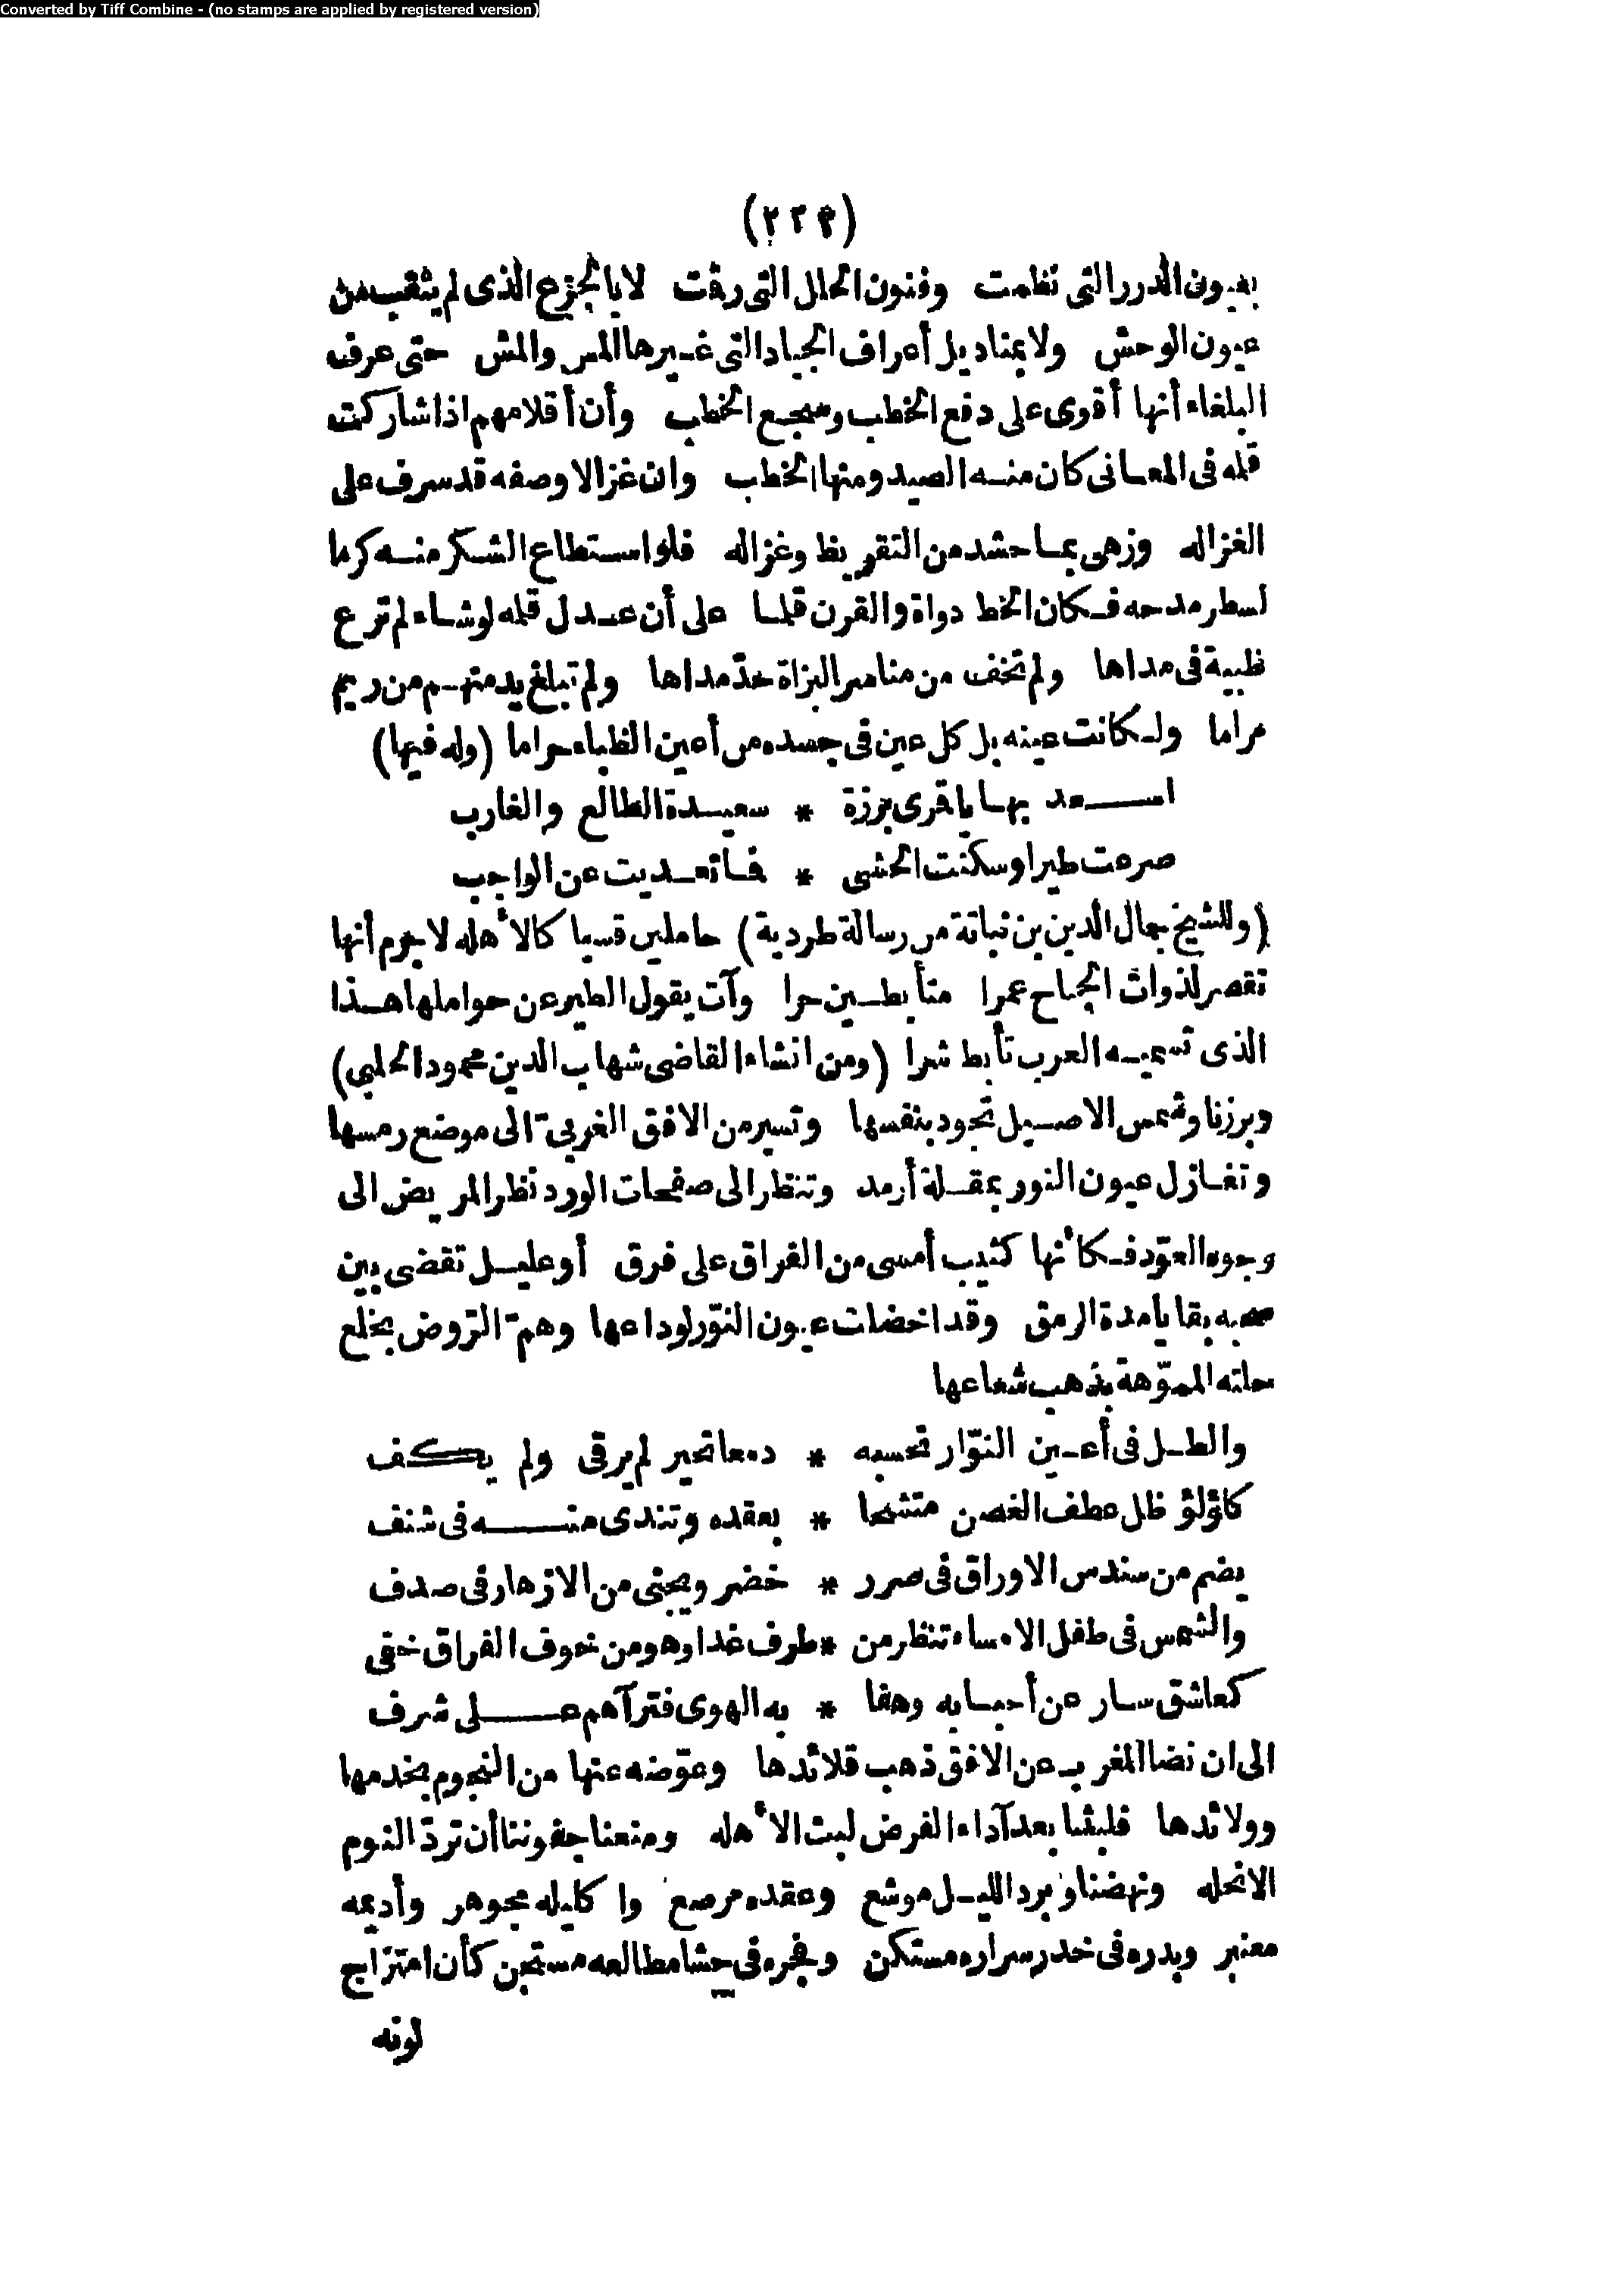 Converted by Tiff Combine - (no stamps are applied by registered version)
(٢٢٣)
بعيون الدرر التى نظمت وفنون الحلل التى رقت لا بالجزع الذى لم يثقب من
عيون الوحش ولا بمناديل أعراف الجياد التى غيرها المس والمش حتى عرف
البلغاء أنها أقوى على دفع الخطب وسجع الخطب وأن أقلامهم اذا شاركت
قلمه فى المعانى كان منه الصيد ومنها الخطب وان غزالا وصفه قد سرف على
الغزاله وزهى بما حشد من التقريظ وغزاله فلو استطاع الشكر منه كرما
لسطر مدحه فكان الخط دواة والقرن قلما على أن عدل قلمه لو شاء لم ترع
ظبية فى مداها ولم تخف من مناسر البزاة حدّ مداها ولم تبلغ يد منهم من ريم
مراما ولكانت عينه بل كل عين فى جسده من أعين الظباء حراما (وله فيها)
اسعد بها يا قرى برزة * سعيدة الطالع والغارب
صرعت طيرا وسكنت الحشى * فما تعديت عن الواجب
(وللشيخ جمال الدين بن نباتة من رسالة طردية) حاملين قسيا كالأهله لا جرم أنها
تقصر لذوات الجناح عمرا متأبطين حرا وآت يقول الطير عن حواملها هذا
الذى تسميه العرب تأبط شرا (ومن انشاء القاضى شهاب الدين محمود الحلبى)
وبرزنا وشمس الاصيل تجود بنفسها وتسير من الافق الغربىّ الى موضع رمسها
وتغازل عيون النور بمقلة أرمد وتنظر الى صفحات الورد نظر المريض الى
وجوه العوّد فكأنها كئيب أمسى من الفراق على فرق أو عليل تقضى بين
صحبه بقايا مدة الرمق وقد اخضلت عيون النوّر لوداعها وهمّ الروض بخلع
حلته المموّهة بذهب شعاعها
والطل فى أعين النوّار تحسبه * دمعا تحير لم يرقى ولم يكف
كلؤلؤ ظل عطف الغصن متشحا * بعقده وتندى منه فى شنف
يضم من سندس الاوراق فى صرر * خضر ويجنى من الازهار فى صدف
والشمس فى طفل الامساء تنظر من * طرف غدا وهو من خوف الفراق خفى
كعاشق سار عن أحبابه وهفا * به الهوى فتراآهم على شرف
الى ان نضا المغرب عن الافق ذهب قلائدها وعوّضه عنها من النجوم بخدمها
وولائدها فلبثنا بعد آداء الفرض لبث الأهله ومنعنا جفوننا أن تردّ النوم
الا تحله ونهضنا وبرد الليل موشع وعقده مرصع وا كليله مجوهر وأديمه
معنبر وبدره فى خدر سراره مستكن وفجره فى حشا مطالعه مستجن كأن امتزاج
لونه